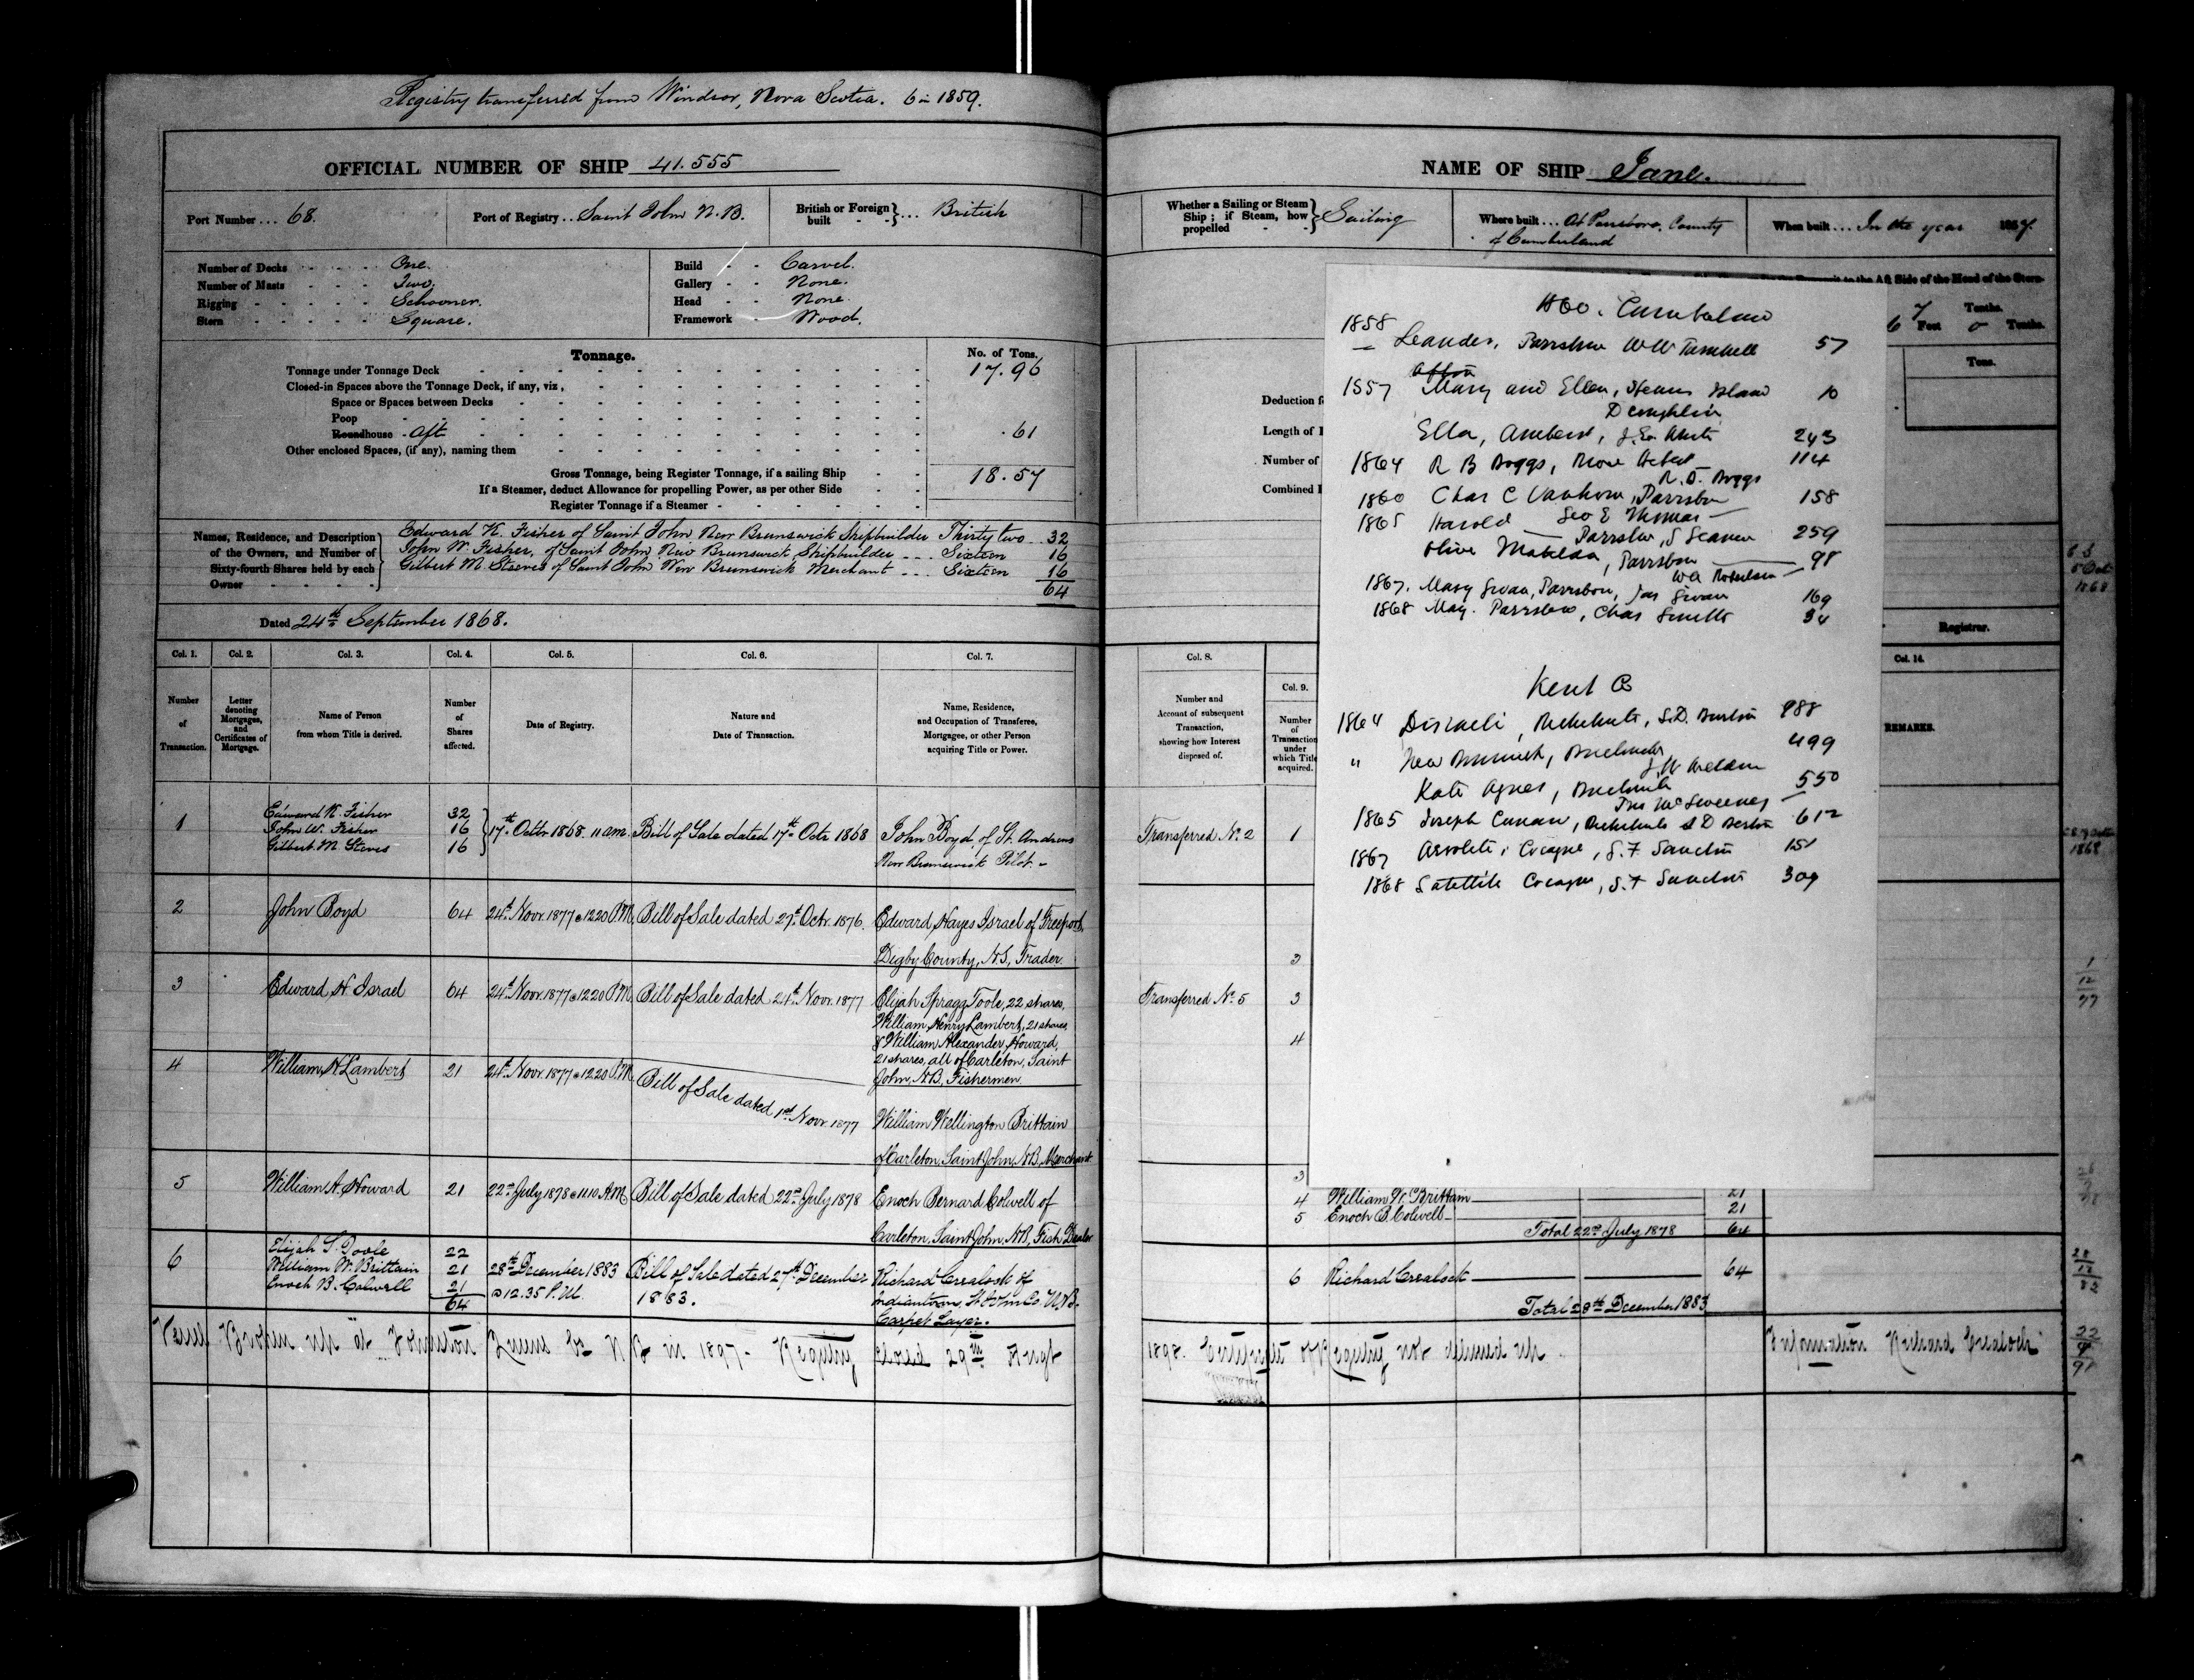 Registry transferred from Windsor, Nova Scotia. 6 in 1859.
OFFICIAL NUMBER OF SHIP 41.555
Port Number ... 68.
Port of Registry .. Saint John N.B.
British or Foreign built } ... British
Number of Decks - - - One.
Number of Masts - - - Two.
Rigging - - - Schooner.
Stern - - - Square.
Build - - Carvel.
Gallery - - None.
Head - - None.
Framework - Wood.
Tonnage.
No. of Tons.
Tonnage under Tonnage Deck 17.96
Closed-in Spaces above the Tonnage Deck, if any, viz,
Space or Spaces between Decks
Poop
Roundhouse - Aft .61
Other enclosed Spaces, (if any), naming them
Gross Tonnage, being Register Tonnage, if a sailing Ship 18.57
If a Steamer, deduct Allowance for propelling Power, as per other Side
Register Tonnage if a Steamer
Names, Residence, and Description of the Owners, and Number of Sixty-fourth Shares held by each Owner
Edward K. Fisher of Saint John New Brunswick Shipbuilder Thirty two 32
John W. Fisher, of Saint John New Brunswick Shipbuilder Sixteen 16
Gilbert M Steeves of Saint John New Brunswick Merchant Sixteen 16
64
Dated 24th September 1868.
Col. 1. Col. 2. Col. 3. Col. 4. Col. 5. Col. 6. Col. 7.
Number of Transaction.
Letter denoting Mortgages, and Certificates of Mortgage.
Name of Person from whom Title is derived.
Number of Shares affected.
Date of Registry.
Nature and Date of Transaction.
Name, Residence, and Occupation of Transferee, Mortgagee, or other Person acquiring Title or Power.
1 Edward K. Fisher 32
John W. Fisher 16
Gilbert M. Steves 16
17th Octbr 1868. 11 am. Bill of Sale dated 17th Octr 1868 John Boyd, of St. Andrews
New Brunswick Pilot.
2 John Boyd 64 24th Novr. 1877 @ 12.20 P.M. Bill of Sale dated 27th Octr. 1876. Edward Hayes Israel of Freeport,
Digby County, N.S., Trader.
3 Edward H. Israel 64 24th Novr. 1877 @ 12.20 P.M. Bill of Sale dated 24th Novr. 1877 Elijah Spragg Toole, 22 shares,
William Henry Lambert, 21 shares,
& William Alexander Howard,
21 shares, all of Carleton, Saint
John, N.B., Fishermen.
4 William H. Lambert 21 24th Novr. 1877 @ 12.20 P.M. Bill of Sale dated 1st Novr. 1877
William Wellington Brittain
of Carleton, Saint John, N.B., Merchant.
5 William A. Howard 21 22nd July 1878 @ 11.10 A.M. Bill of Sale dated 22nd July 1878 Enoch Bernard Colwell of
Carleton, Saint John, N.B., Fish Dealer
6 Elijah S. Toole 22
William W. Brittain 21
Enoch B. Colwell 21
64
28th December 1883 @ 12.35 P.M. Bill of Sale dated 27th December 1883.
Richard Crealock of
Indiantown, St John Co. N.B.
Carpet Layer.
Vessel Broken up at Johnston Queens Co N B in 1897 - Registry closed 29th Augt
NAME OF SHIP Jane.
Whether a Sailing or Steam Ship; if Steam, how propelled } Sailing
Where built ... At Parrsboro, County of Cumberland
When built ... In the year 1857.
to the Aft Side of the Head of the Stern-
7 Tenths.
6 Feet 0 Tenths.
Tons.
Deduction
Length of
Number of
Combined
Registrar.
Co. Cumberland
1858
Leander, Parrsboro 57
1857 Mary and Ellen, Island 10
Ella, Amherst, 243
1864 R B Boggs, 114
R. D. Boggs
1860 Chas C Vanhorn, Parrsboro 158
Geo E Thomas
1865 Harold Parrsboro, 259
Olive Matilda, Parrsboro 98
W A Robertson
1867. Mary Swan, Parrsboro, Jas Swan 169
1868 May. Parrsboro, Chas 34
Kent Co
1864 Disraeli, Richibucto, 988
" New Brunswick, 499
Kate Agnes, 550
Jno McSweeney
1865 Joseph 612
1867 Cocagne, S. F 151
1868 Satellite Cocagne, S. F 309
Col. 8.
Number and Account of subsequent Transaction, showing how Interest disposed of.
Col. 9.
Number of Transaction under which Title acquired.
Col. 14.
REMARKS.
Transferred No. 2 1
3
Transferred No. 5 3
4
3
4 William W. Brittain 21
5 Enoch B. Colwell 21
Total 22nd July 1878 64
6 Richard Crealock 64
Total 28th December 1883
1898. Certificate of Registry not delivered up. Information Richard Crealock